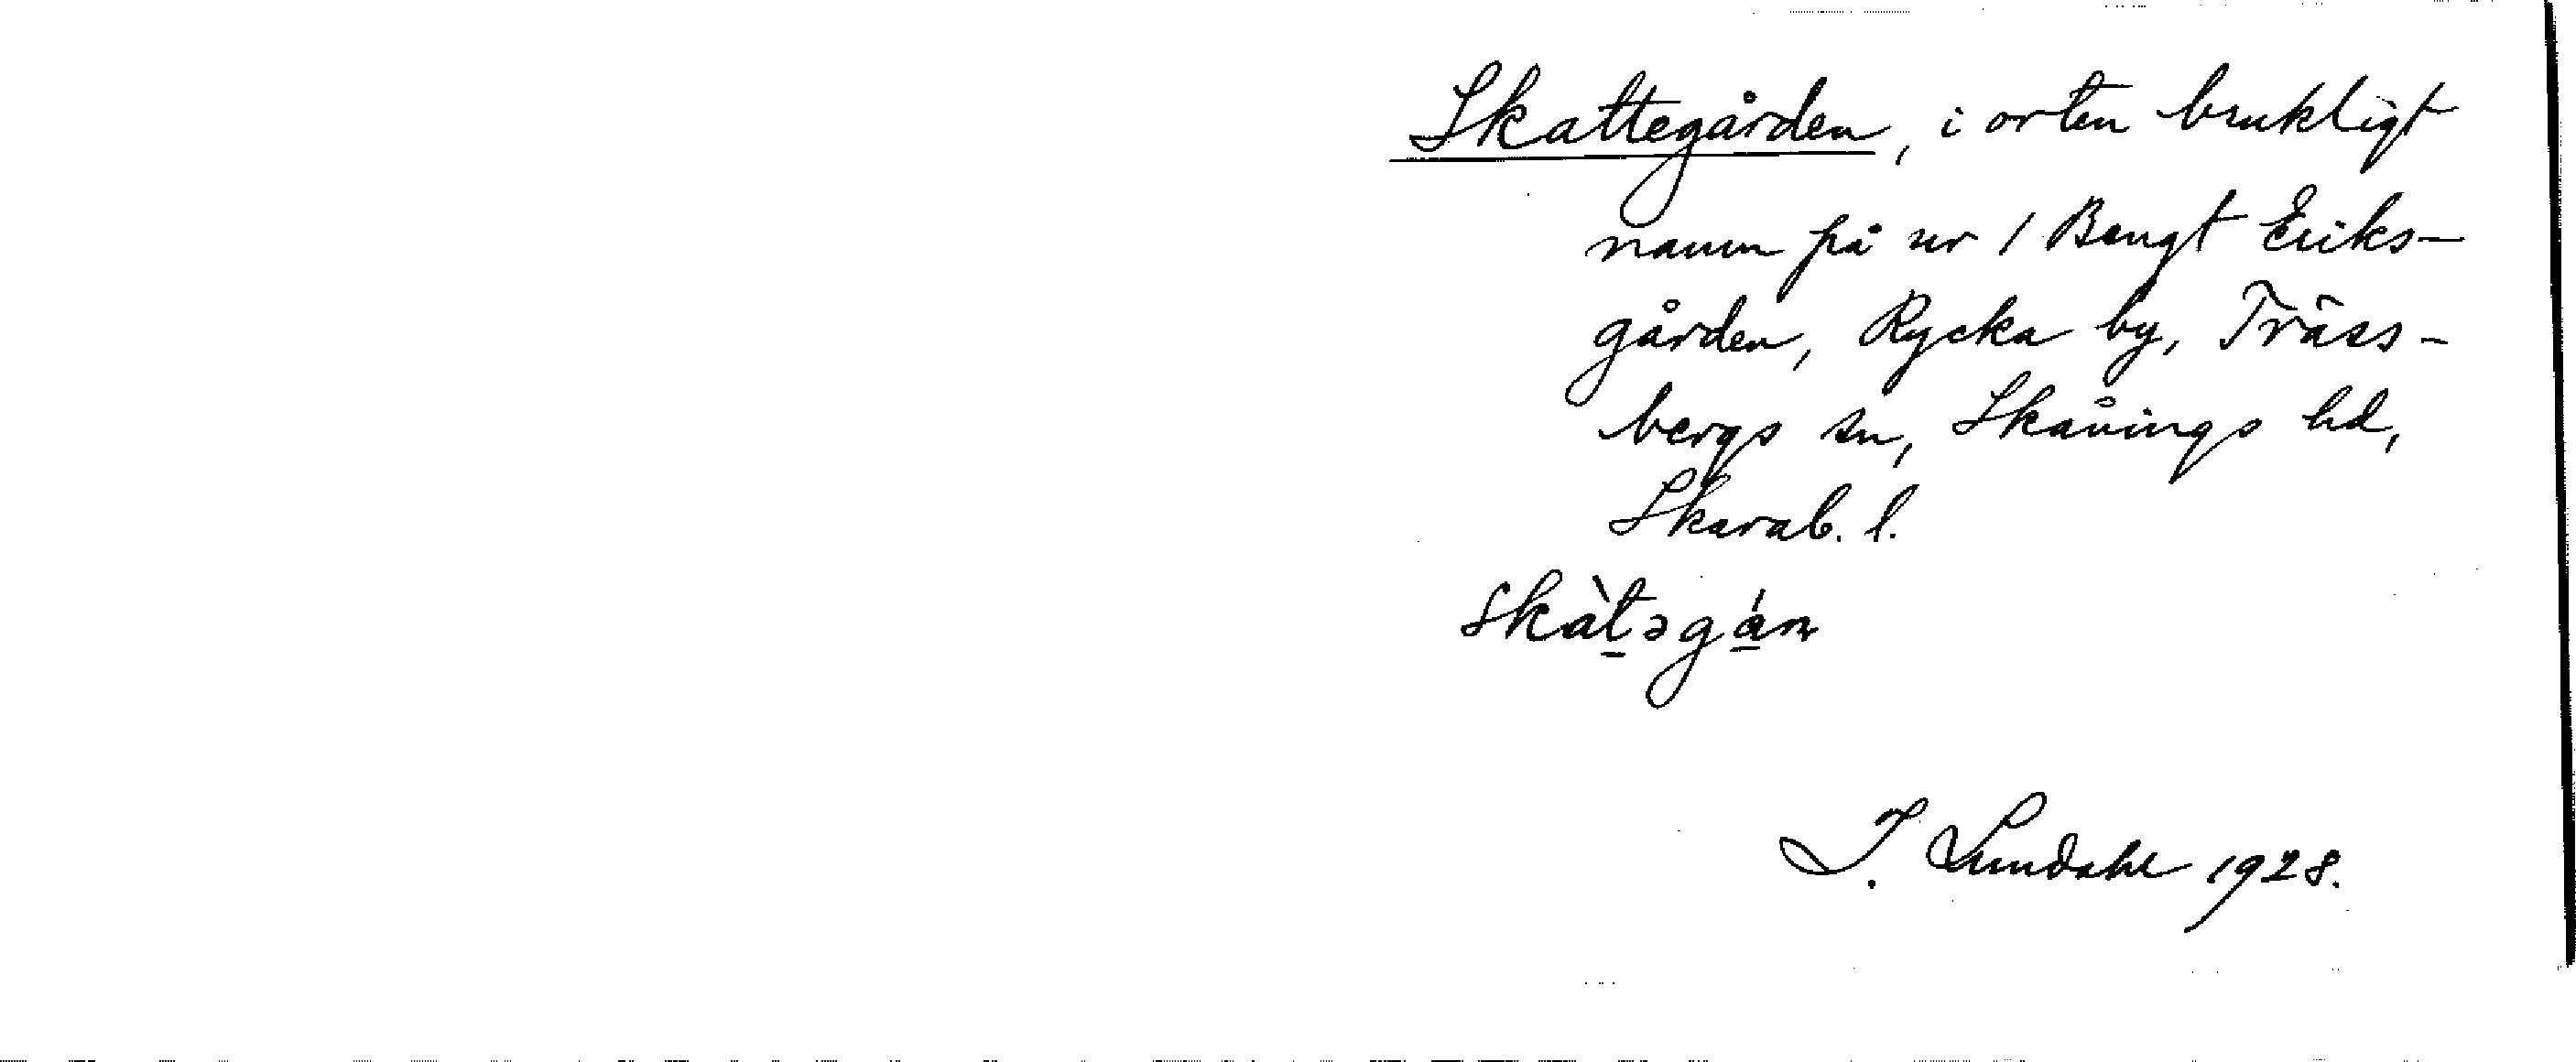 Skattegården, i orten brukligt
namn på nr 1 Bengt Eriks-
gården, Rycka by, Träss-
bergs sn, Skånings hd,
Skarab. l.
skàt̠əgá̠n
I. Lundahl 1928.